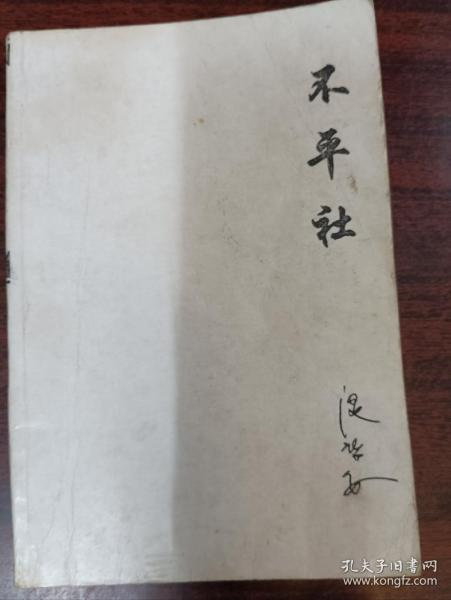 不平社
孔夫子旧书网
www.kongfz.com